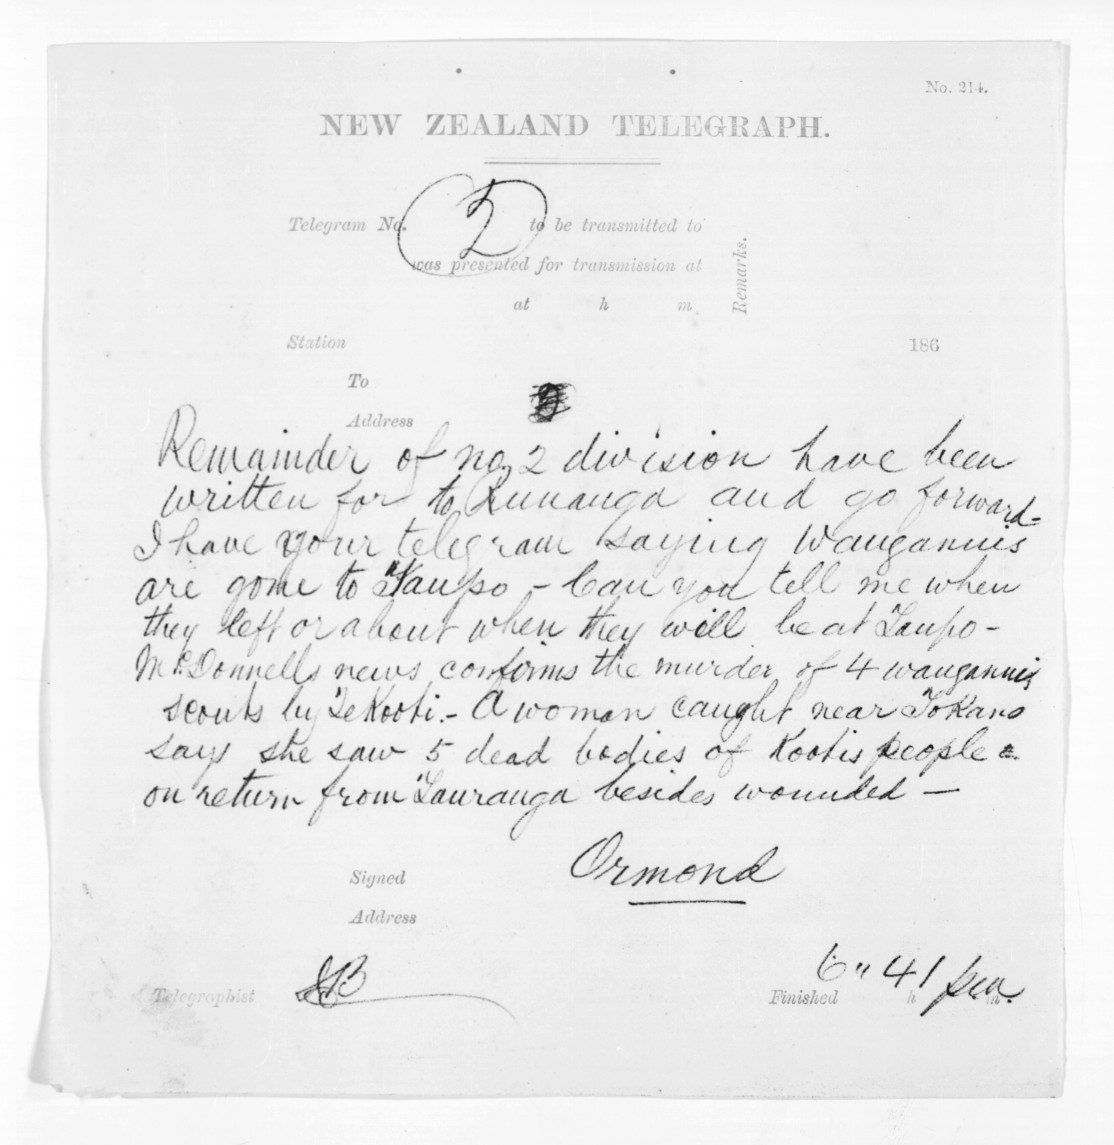 No. 214.
NEW ZEALAND TELEGRAPH.
Telegram No. 2 to be transmitted to
was presented for transmission at
at h m.
Remarks.
Station 186
To
Address
Remainder of no, 2 division have been
written for to Runanga and go forward-
I have your telegram saying Wangannis
are gone to Taupo - Can you tell me when
they left or about when they will be at Taupo -
McDonnells news confirms the murder of 4 wangannis
scouts by TeKooti. - A woman caught near Tokano
says she saw 5 dead bodies of Kootis people
on return from Tauranga besides wounded -
Signed Ormond
Address
Telegraphist
Finished 6 " 41 pm.